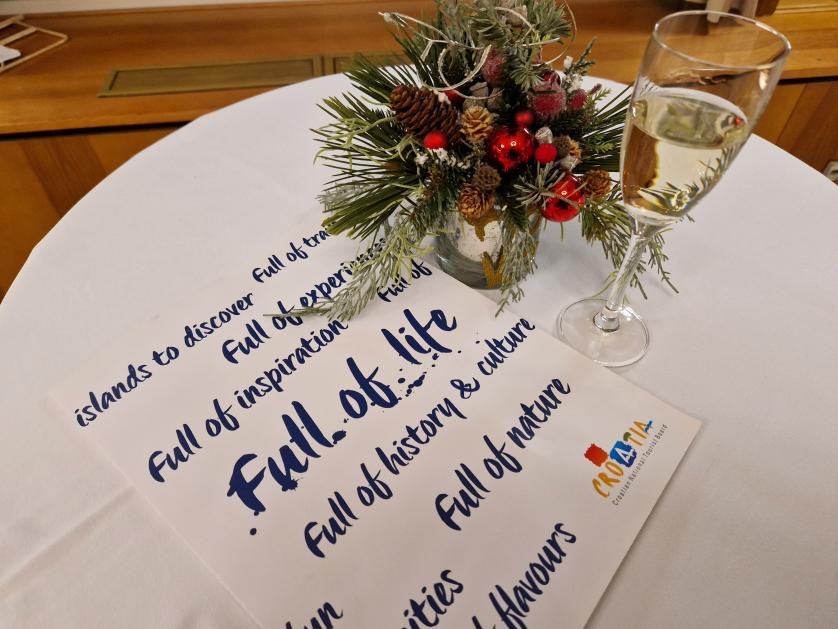 Full of tra
islands to discover
Full of experiences
Full of inspiration
Full of
Full of life
Full of history & culture
Full of nature
CROATIA
Croatian National Tourist Board
un
ities
flavours